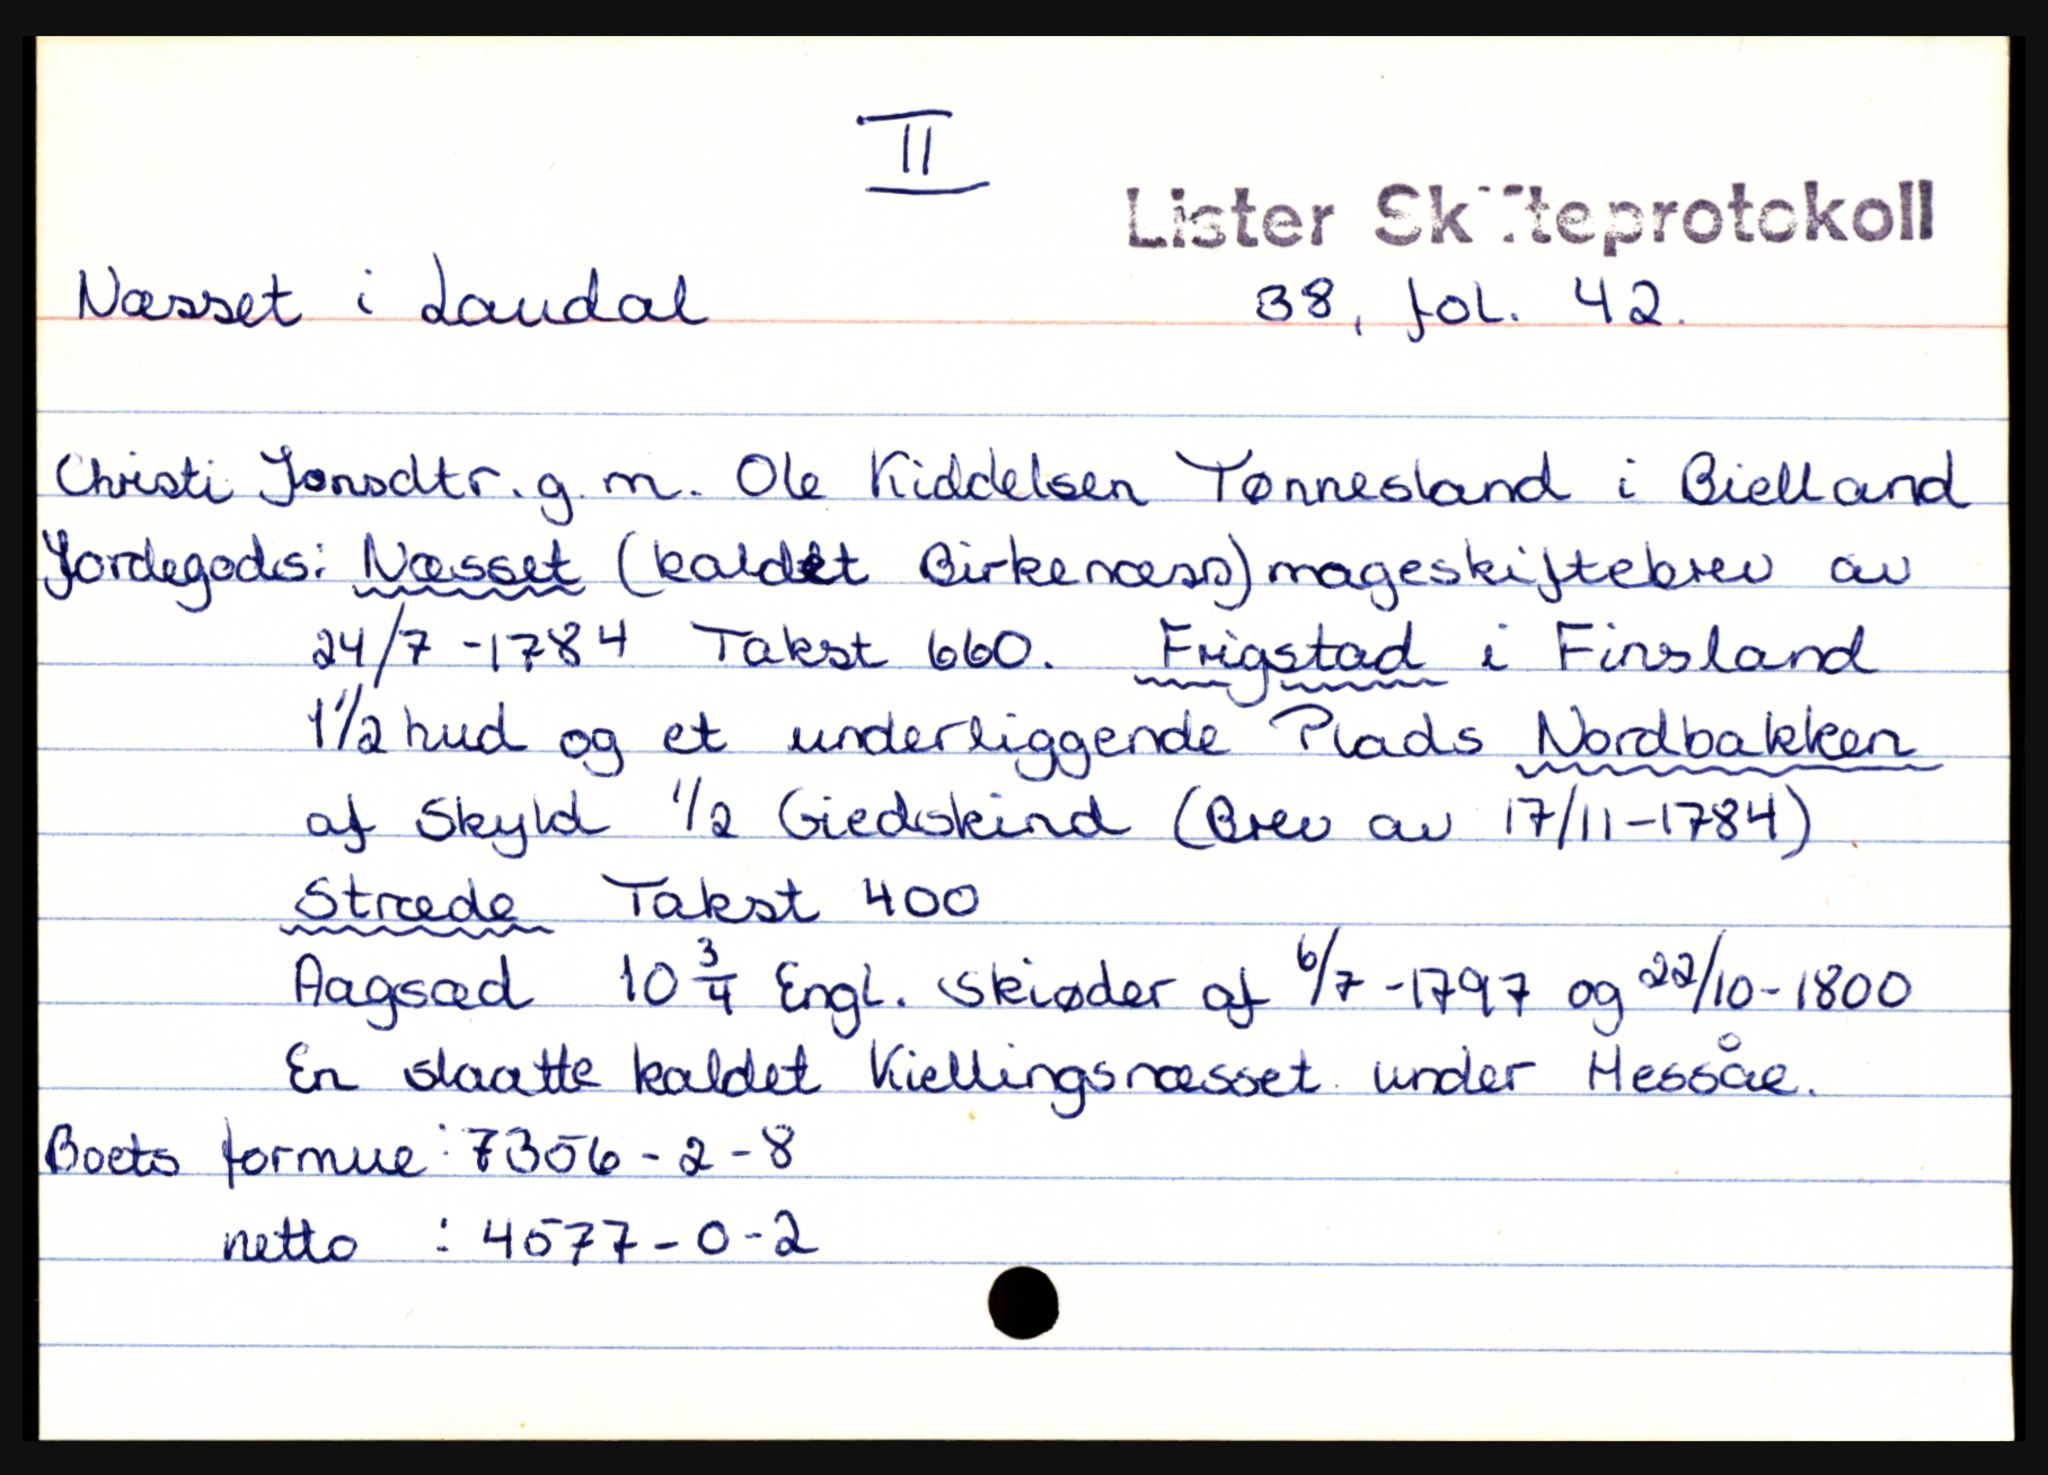 II
Lister Skifteprotokoll
Næsset i Laudal 38, fol. 42.
Christi Jonsdtr. g. m. Ole Kiddelsen Tønnesland i Bielland
Jordegods: Næsset (kaldet Birkenæss) mageskiftebrev av
24/7 -1784 Takst 660. Frigstad i Finsland
1 1/2 hud og et underliggende Plads Nordbakken
af Skyld 1/2 Giedskind (Brev av 17/11-1784)
Stræde Takst 400
Aagsæd 10 3/4 Engl. skiøder af 6/7 -1797 og 22/10-1800
En slaatte kaldet Kiellingsnæsset under Hessåe.
Boets formue: 7356-2-8
netto : 4577-0-2